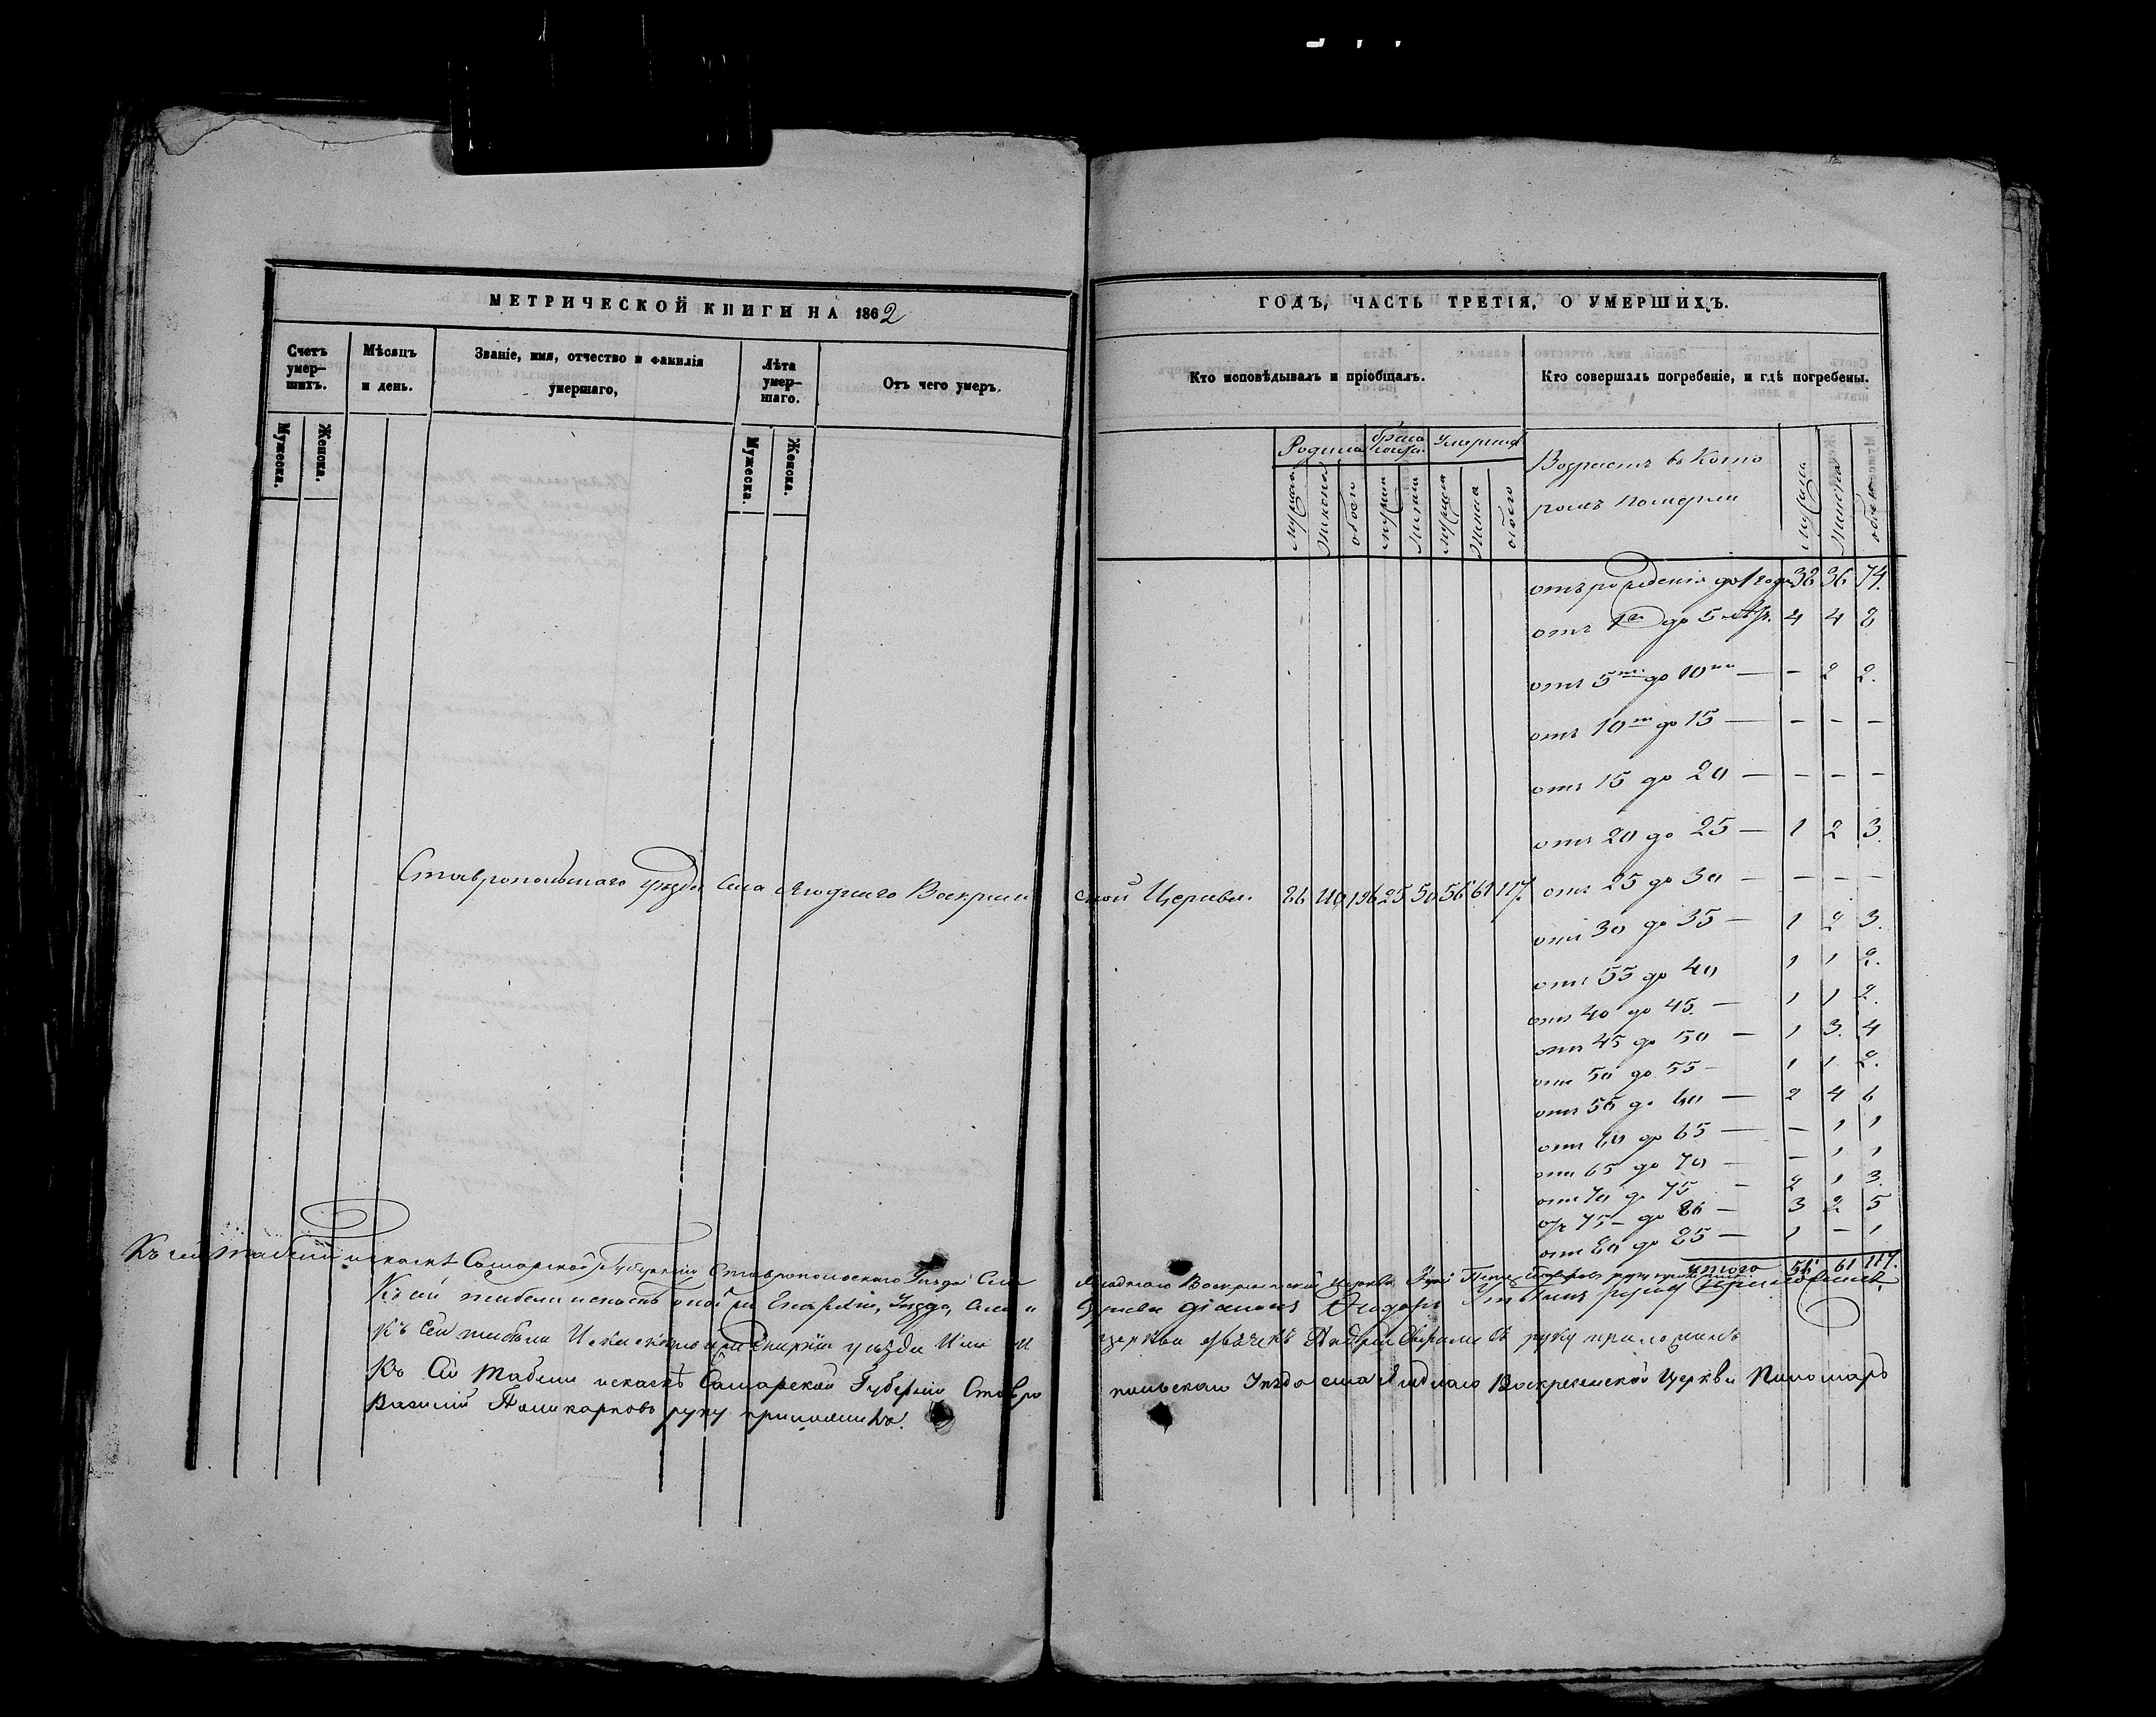 МЕТРИЧЕСКОЙ КНИГИ НА 1862
Счетъ умер-шихъ.
Мѣсяцъ и день.
Званіе, имя, отчество и фамилія умершаго,
Лѣта умер-шаго.
Отъ чего умеръ.
Мужеска.
Женска.
Мужеска.
Женска.
Ставропольскаго уѣзда села Ягоднаго Воскресен
Къ сей табели искаскѣ Самарской Губерніи Ставропольскаго Уѣзда Села
Къ сей табели Епархіи, Уѣзда, Села и
Къ сей табели Епархіи уѣзда Села и
Къ Сей Табели искаскѣ Самарской Губерніи Ставро
Василій Поликарповъ руку приложилъ.
ГОДЪ, ЧАСТЬ ТРЕТІЯ, О УМЕРШИХЪ.
Кто исповѣдывалъ и пріобщалъ.
Кто совершалъ погребеніе, и гдѣ погребены.
Возрастъ въ Кото
ромъ померли
отъ рожденія до 1 года 38 36 74.
отъ 1го до 5 4 4 8
отъ 5ти до 10ти — – 2 2.
отъ 10ти до 15 — – – –
отъ 15 до 20 — – – –
отъ 20 до 25 — 1 2 3
ской Церкви. 86 110 196 25 50 56 61 117.
отъ 25 до 30 — – – –
отъ 30 до 35 — 1 2 3.
отъ 35 до 40 1 1 2.
отъ 40 до 45. — 1 1 2.
отъ 45 до 50 — 1 3. 4
отъ 50 до 55 – 1 1 2.
отъ 55 до 60 — 2 4 6
отъ 60 до 65 — – 1 1
отъ 65 до 70 — – 1 1
отъ 70 до 75 – 2 1 3.
отъ 75 – до 80 — 3 2 5
отъ 80 до 85 — 1 – 1
итого 56 61 117.
Ягоднаго Воскресенской Церкви
Церкви діаконъ Ѳедоръ руку приложилъ
церкви руку приложилъ
польскаго Уѣзда села Ягоднаго Воскресенской Церкви Пономарь